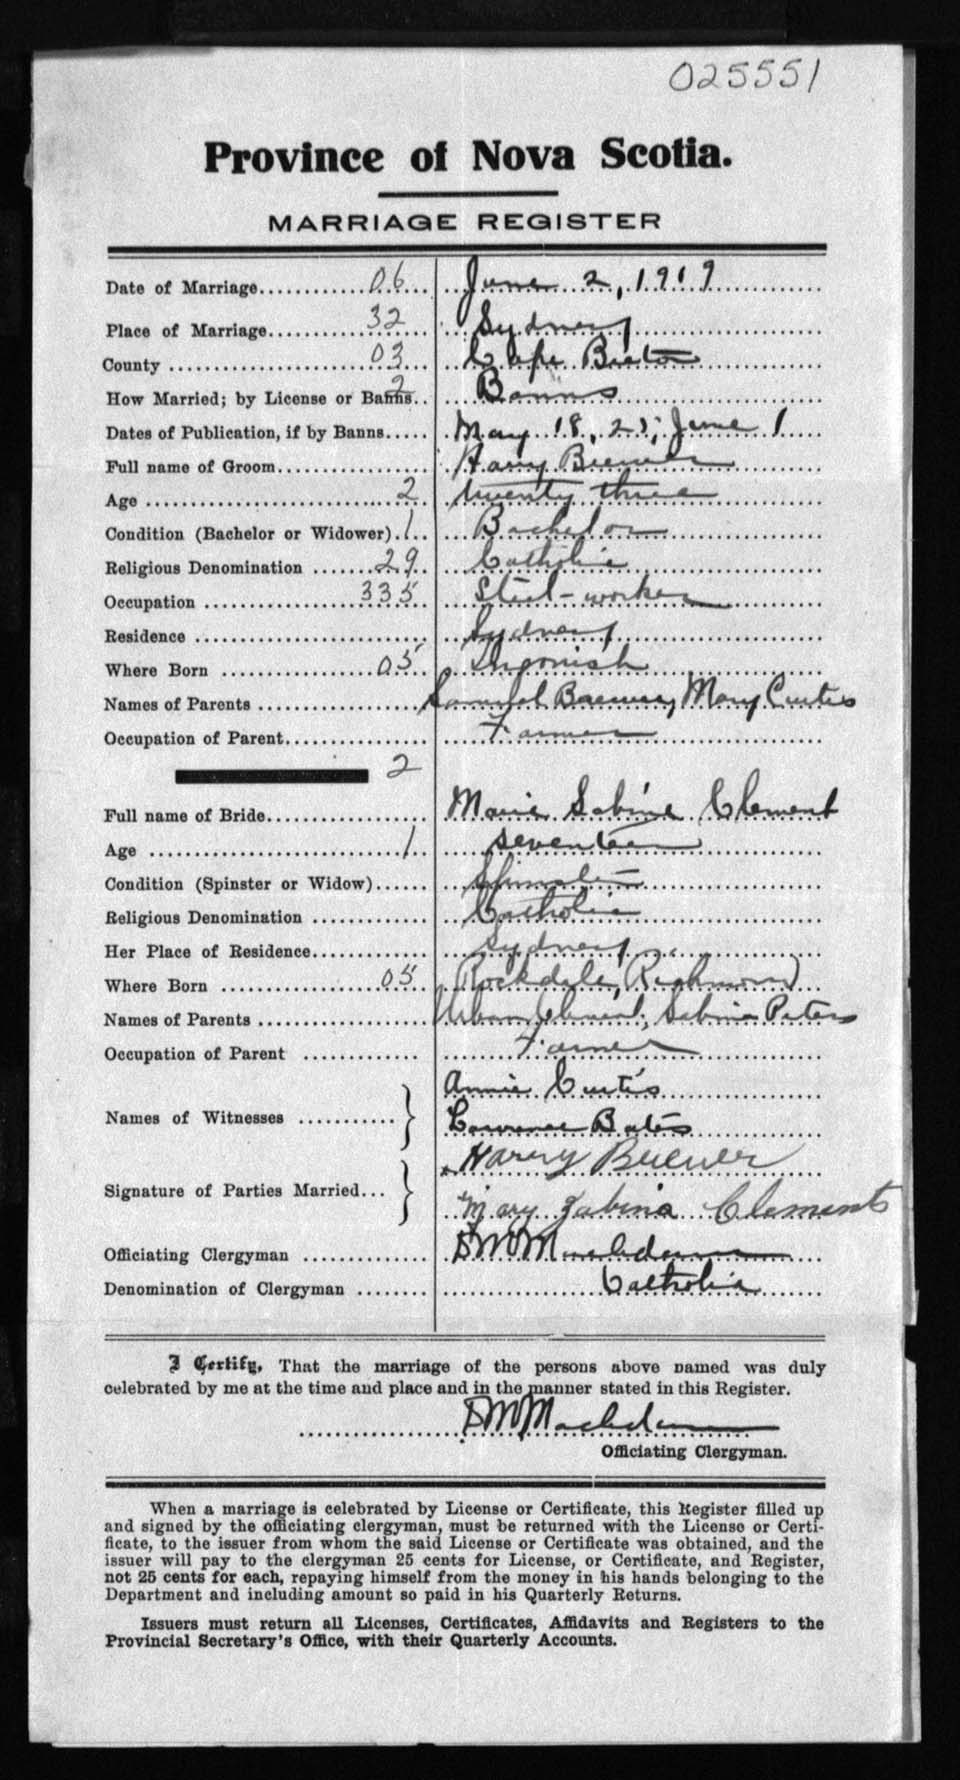 025551
Province of Nova Scotia.
MARRIAGE REGISTER
Date of Marriage............06... June 2, 1919
Place of Marriage...............32... Sydney
County .......................03... Cape Breton
How Married; by License or Banns.. 2 Banns
Dates of Publication, if by Banns..... May 18, 25, June 1
Full name of Groom................. Harry Brewer
Age ...........................2.. twenty three
Condition (Bachelor or Widower).1... Bachelor
Religious Denomination .......29.. Catholic
Occupation ..................335.. Steel-worker
Residence .......................... Sydney
Where Born .................05.. Ingonish
Names of Parents .................. Samuel Brewer, Mary Curtis
Occupation of Parent................ Farmer
2
Full name of Bride.................. Marie Sabine Clement
Age .............................1... seventeen
Condition (Spinster or Widow)...... Spinster
Religious Denomination ............ Catholic
Her Place of Residence............. Sydney
Where Born ..................05... Rockdale, Richmond
Names of Parents .................. Urban Clement, Sabina Peters
Occupation of Parent ............. Farmer
Names of Witnesses ........... } Annie Curtis
Lawrence Bates
Signature of Parties Married... } Harry Brewer
Mary Zabina Clements
Officiating Clergyman ............. D M
Denomination of Clergyman ........ Catholic
I Certify, That the marriage of the persons above named was duly
celebrated by me at the time and place and in the manner stated in this Register.
D M
Officiating Clergyman.
When a marriage is celebrated by License or Certificate, this Register filled up
and signed by the officiating clergyman, must be returned with the License or Certi-
ficate, to the issuer from whom the said License or Certificate was obtained, and the
issuer will pay to the clergyman 25 cents for License, or Certificate, and Register,
not 25 cents for each, repaying himself from the money in his hands belonging to the
Department and including amount so paid in his Quarterly Returns.
Issuers must return all Licenses, Certificates, Affidavits and Registers to the
Provincial Secretary's Office, with their Quarterly Accounts.